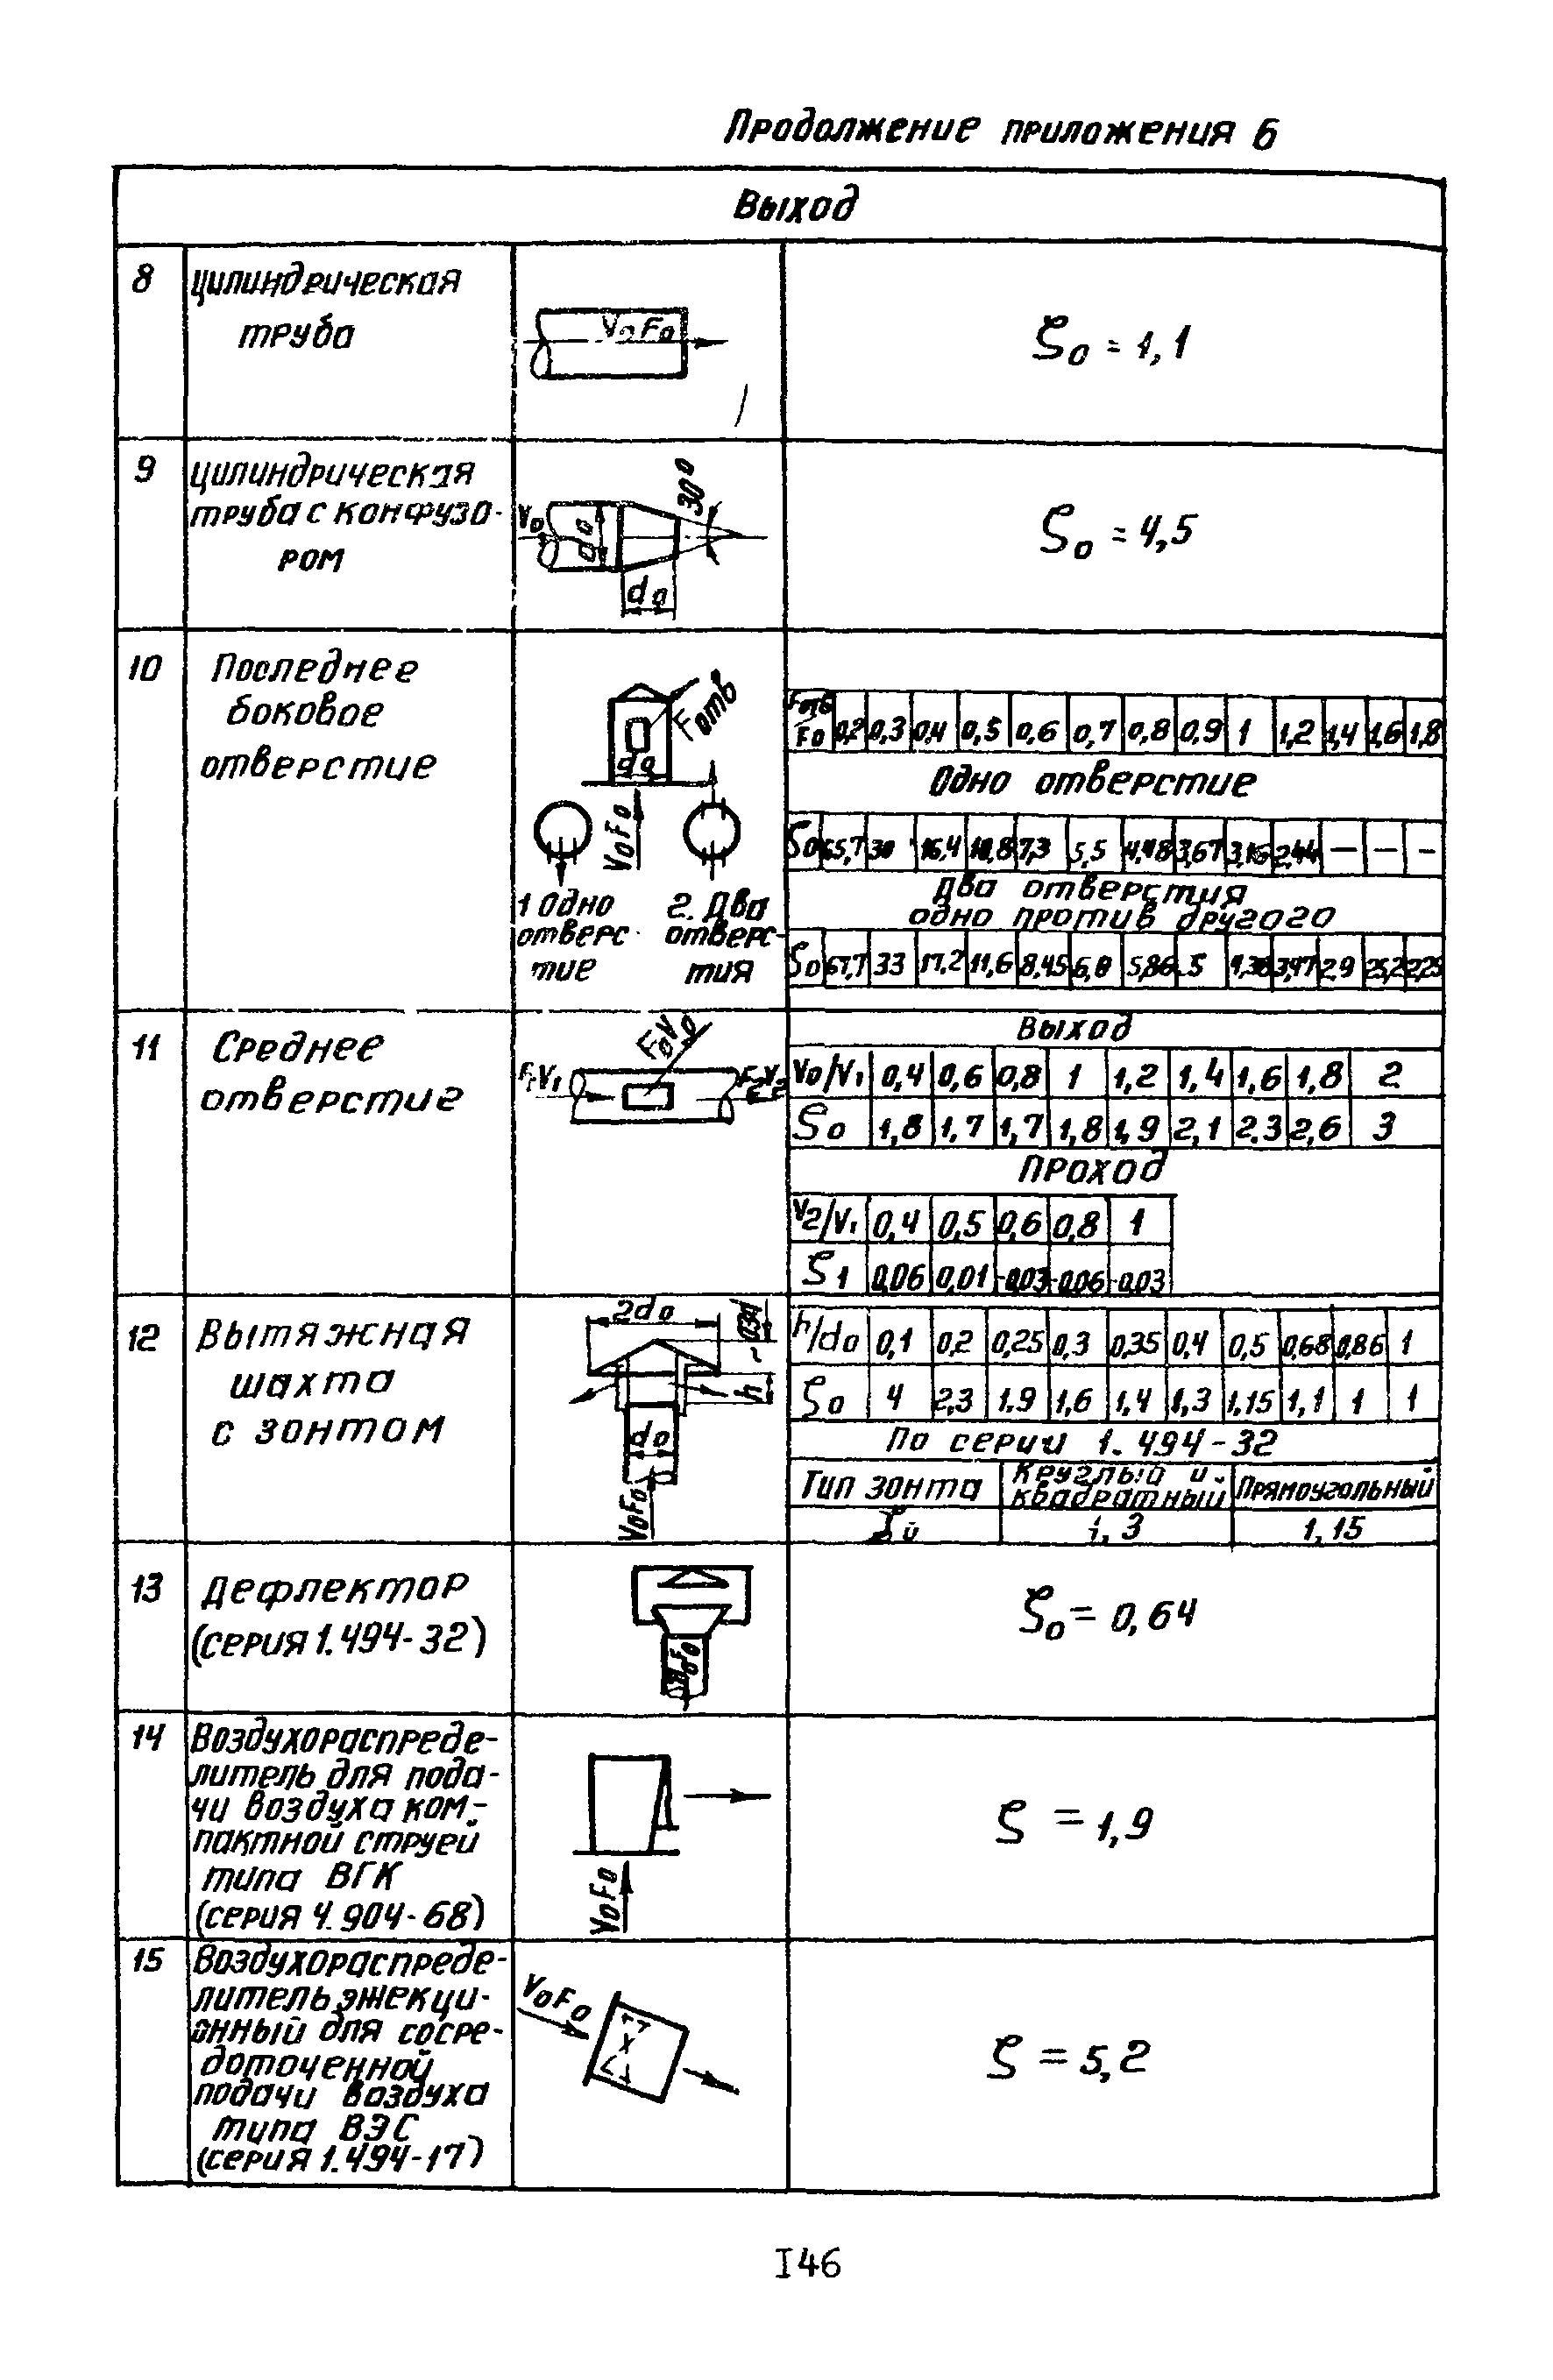 Продолжение приложения 6
Выход
8
Цилиндрическая
труба
V0 F0
ζ0 = 1,1
9
Цилиндрическая
труба с конфузо-
ром
V0
d0
30°
d0
ζ0 = 4,5
10
Последнее
боковое
отверстие
Fотв
d0
V0F0
1 Одно
отверс-
тие
2. Два
отверс-
тия
Fотв/F0 0,2 0,3 0,4 0,5 0,6 0,7 0,8 0,9 1 1,2 1,4 1,6 1,8
Одно отверстие
ζ0 65,7 30 16,4 10,8 7,3 5,5 4,48 3,67 3,16 2,44 — — —
Два отверстия
одно против другого
ζ0 67,7 33 17,2 11,6 8,45 6,8 5,86 5 4,38 3,47 2,9 25,2 2,25
11
Среднее
отверстие
F1V1
F0V0
F2V2
Выход
V0/V1 0,4 0,6 0,8 1 1,2 1,4 1,6 1,8 2
ζ0 1,8 1,7 1,7 1,8 1,9 2,1 2.3 2,6 3
Проход
V2/V1 0,4 0,5 0,6 0,8 1
ζ1 0,06 0,01 -0,03 -0,06 -0,03
12
Вытяжная
шахта
с зонтом
2d0
h
d0
V0F0
h/d0 0,1 0,2 0,25 0,3 0,35 0,4 0,5 0,68 0,86 1
ζ0 4 2,3 1.9 1,6 1,4 1,3 1,15 1,1 1 1
По серии 1.494-32
Тип зонта
Круглый и
квадратный
Прямоугольный
ζ0 1,3 1,15
13
Дефлектор
(серия 1.494-32)
V0F0
ζ0 = 0,64
14
Воздухораспреде-
литель для пода-
чи воздуха ком-
пактной струей
типа ВГК
(серия 4.904-68)
V0F0
ζ = 1,9
15
Воздухораспреде-
литель эжекци-
онный для сосре-
доточенной
подачи воздуха
типа ВЭС
(серия 1.494-17)
V0F0
ζ = 5,2
I46